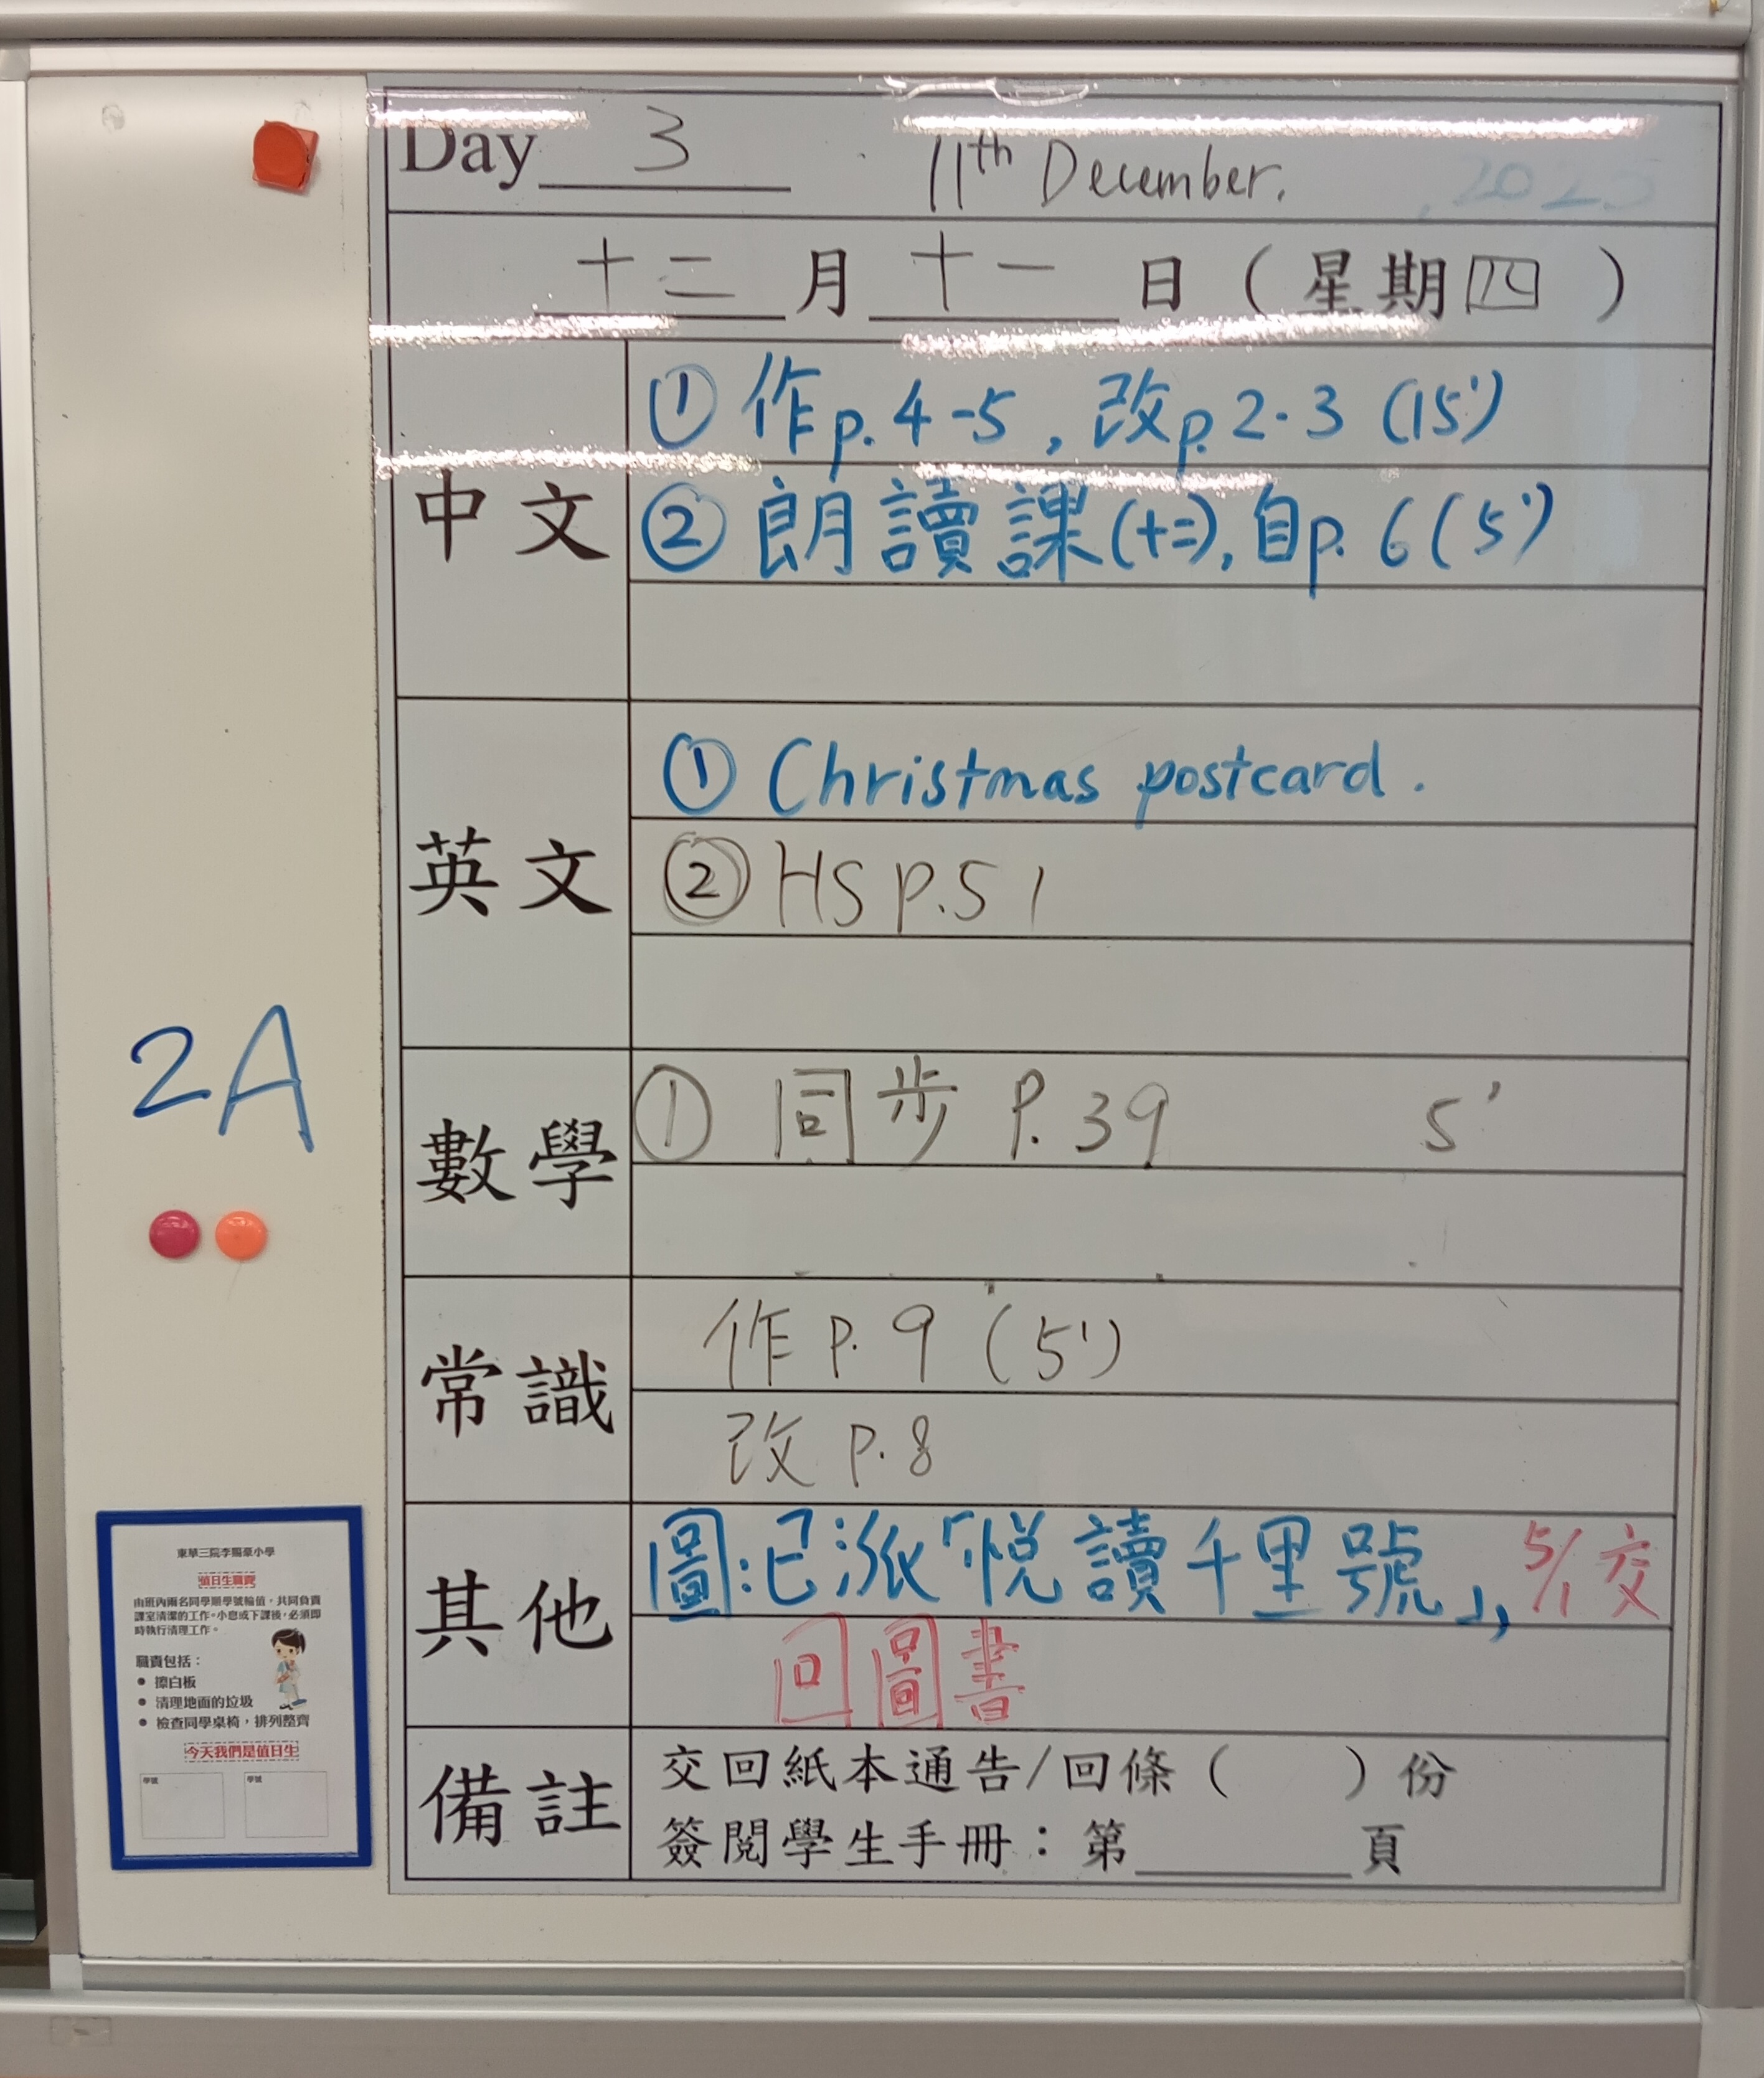 Day 3 11th December. , 2025
十二 月 十一 日 ( 星期四 )
中文
① 作p. 4-5 , 改p. 2-3 (15')
② 朗讀課(十二), 自p. 6 (5')
英文
① Christmas postcard.
② HS P.51
數學
① 同步 P. 39 5'
常識
作 P. 9 (5')
改 P. 8
其他
圖:已派「悅讀千里號」, 5/1 交
回圖書
備註
交回紙本通告/回條 ( ) 份
簽閱學生手冊:第 頁
2A
東華三院李賜豪小學
值日生職責
由班內兩名同學順學號輪值,共同負責
課室清潔的工作。小息或下課後,必須即
時執行清理工作。
職責包括:
● 擦白板
● 清理地面的垃圾
● 檢查同學桌椅,排列整齊
今天我們是值日生
學號 學號